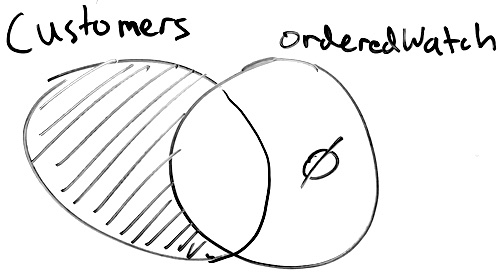 Customers
orderedWatch
Ø